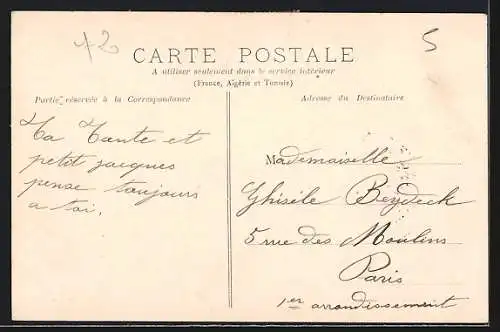 42
5
CARTE POSTALE
A utiliser seulement dans le service intérieur
(France, Algérie et Tunisie)
Partie réservée à la Correspondance
Adresse du Destinataire
Ta Tante et
petit jacques
pense toujours
a toi.
Mademoiselle
Ghisèle Beydeck
5 rue des Moulins
Paris
1er arrondissement